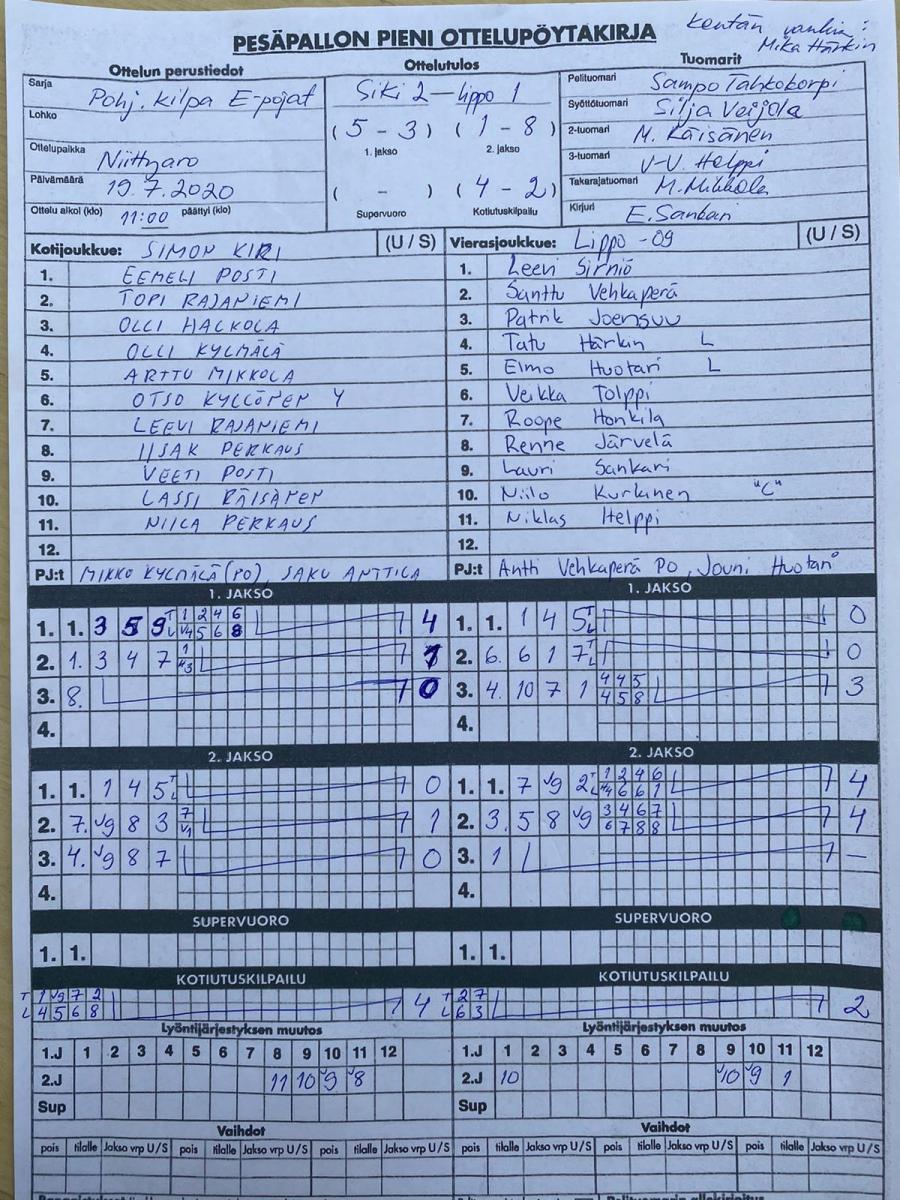 Kentän vanhin:
Mika Härkin
PESÄPALLON PIENI OTTELUPÖYTÄKIRJA
Ottelun perustiedot
Ottelutulos
Tuomarit
Sarja Pohj. Kilpa E-pojat
Lohko
Ottelupaikka Niittyaro
Päivämäärä 19.7.2020
Ottelu alkoi (klo) 11:00 päättyi (klo)
Siki 2 – Lippo 1
(5 - 3) (1 - 8)
1. jakso 2. jakso
( - ) (4 - 2)
Supervuoro Kotiutuskilpailu
Pelituomari Sampo Tahkokorpi
Syöttötuomari Silja Veijola
2-tuomari M. Räisänen
3-tuomari V-V. Helppi
Takarajatuomari M. Mikkola
Kirjuri E. Sankari
Kotijoukkue: SIMON KIRI (U / S)
1. EEMELI POSTI
2. TOPI RAJANIEMI
3. OLLI HALKOLA
4. OLLI KYLMÄLÄ
5. ARTTU MIKKOLA
6. OTSO KYLLÖNEN Y
7. LEEVI RAJANIEMI
8. IISAK PERKAUS
9. VEETI POSTI
10. LASSI RÄISÄNEN
11. NIILA PERKAUS
12.
PJ:t MIKKO KYLMÄLÄ (PO), SAKU ANTTILA
Vierasjoukkue: Lippo -09 (U / S)
1. Leevi Sirniö
2. Santtu Vehkaperä
3. Patrik Joensuu
4. Tatu Härkin L
5. Elmo Huotari L
6. Veikka Tolppi
7. Roope Honkila
8. Renne Järvelä
9. Lauri Sankari
10. Niilo Kurkinen "C"
11. Niklas Helppi
12.
PJ:t Antti Vehkaperä PO, Jouni Huotari
1. JAKSO
1. 1. 3 5 9 T 1 2 4 6 4
L V4 5 6 8
2. 1. 3 4 7 1 1
3. 8. 0
4.
1. JAKSO
1. 1. 1 4 5 T L 0
2. 6. 6 1 7 T L 0
3. 4. 10 7 1 4 4 5 3
4 5 8
4.
2. JAKSO
1. 1. 1 4 5 T L 0
2. 7. V9 8 3 7 1
V1
3. 4. V9 8 7 0
4.
2. JAKSO
1. 1. 7 V9 2 T 1 2 4 6 4
L V4 6 6 1
2. 3. 5 8 V9 3 4 6 7 4
6 7 8 8
3. 1 –
4.
SUPERVUORO
1. 1.
SUPERVUORO
1. 1.
KOTIUTUSKILPAILU
T 1 V9 7 2 4
L 4 5 6 8
KOTIUTUSKILPAILU
T 2 7 2
L 6 3
Lyöntijärjestyksen muutos
1.J 1 2 3 4 5 6 7 8 9 10 11 12
2.J 11 10 V9 V8
Sup
Lyöntijärjestyksen muutos
1.J 1 2 3 4 5 6 7 8 9 10 11 12
2.J 10 V10 V9 1
Sup
Vaihdot
pois tilalle Jakso vrp U/S pois tilalle Jakso vrp U/S pois tilalle Jakso vrp U/S
Vaihdot
pois tilalle Jakso vrp U/S pois tilalle Jakso vrp U/S pois tilalle Jakso vrp U/S